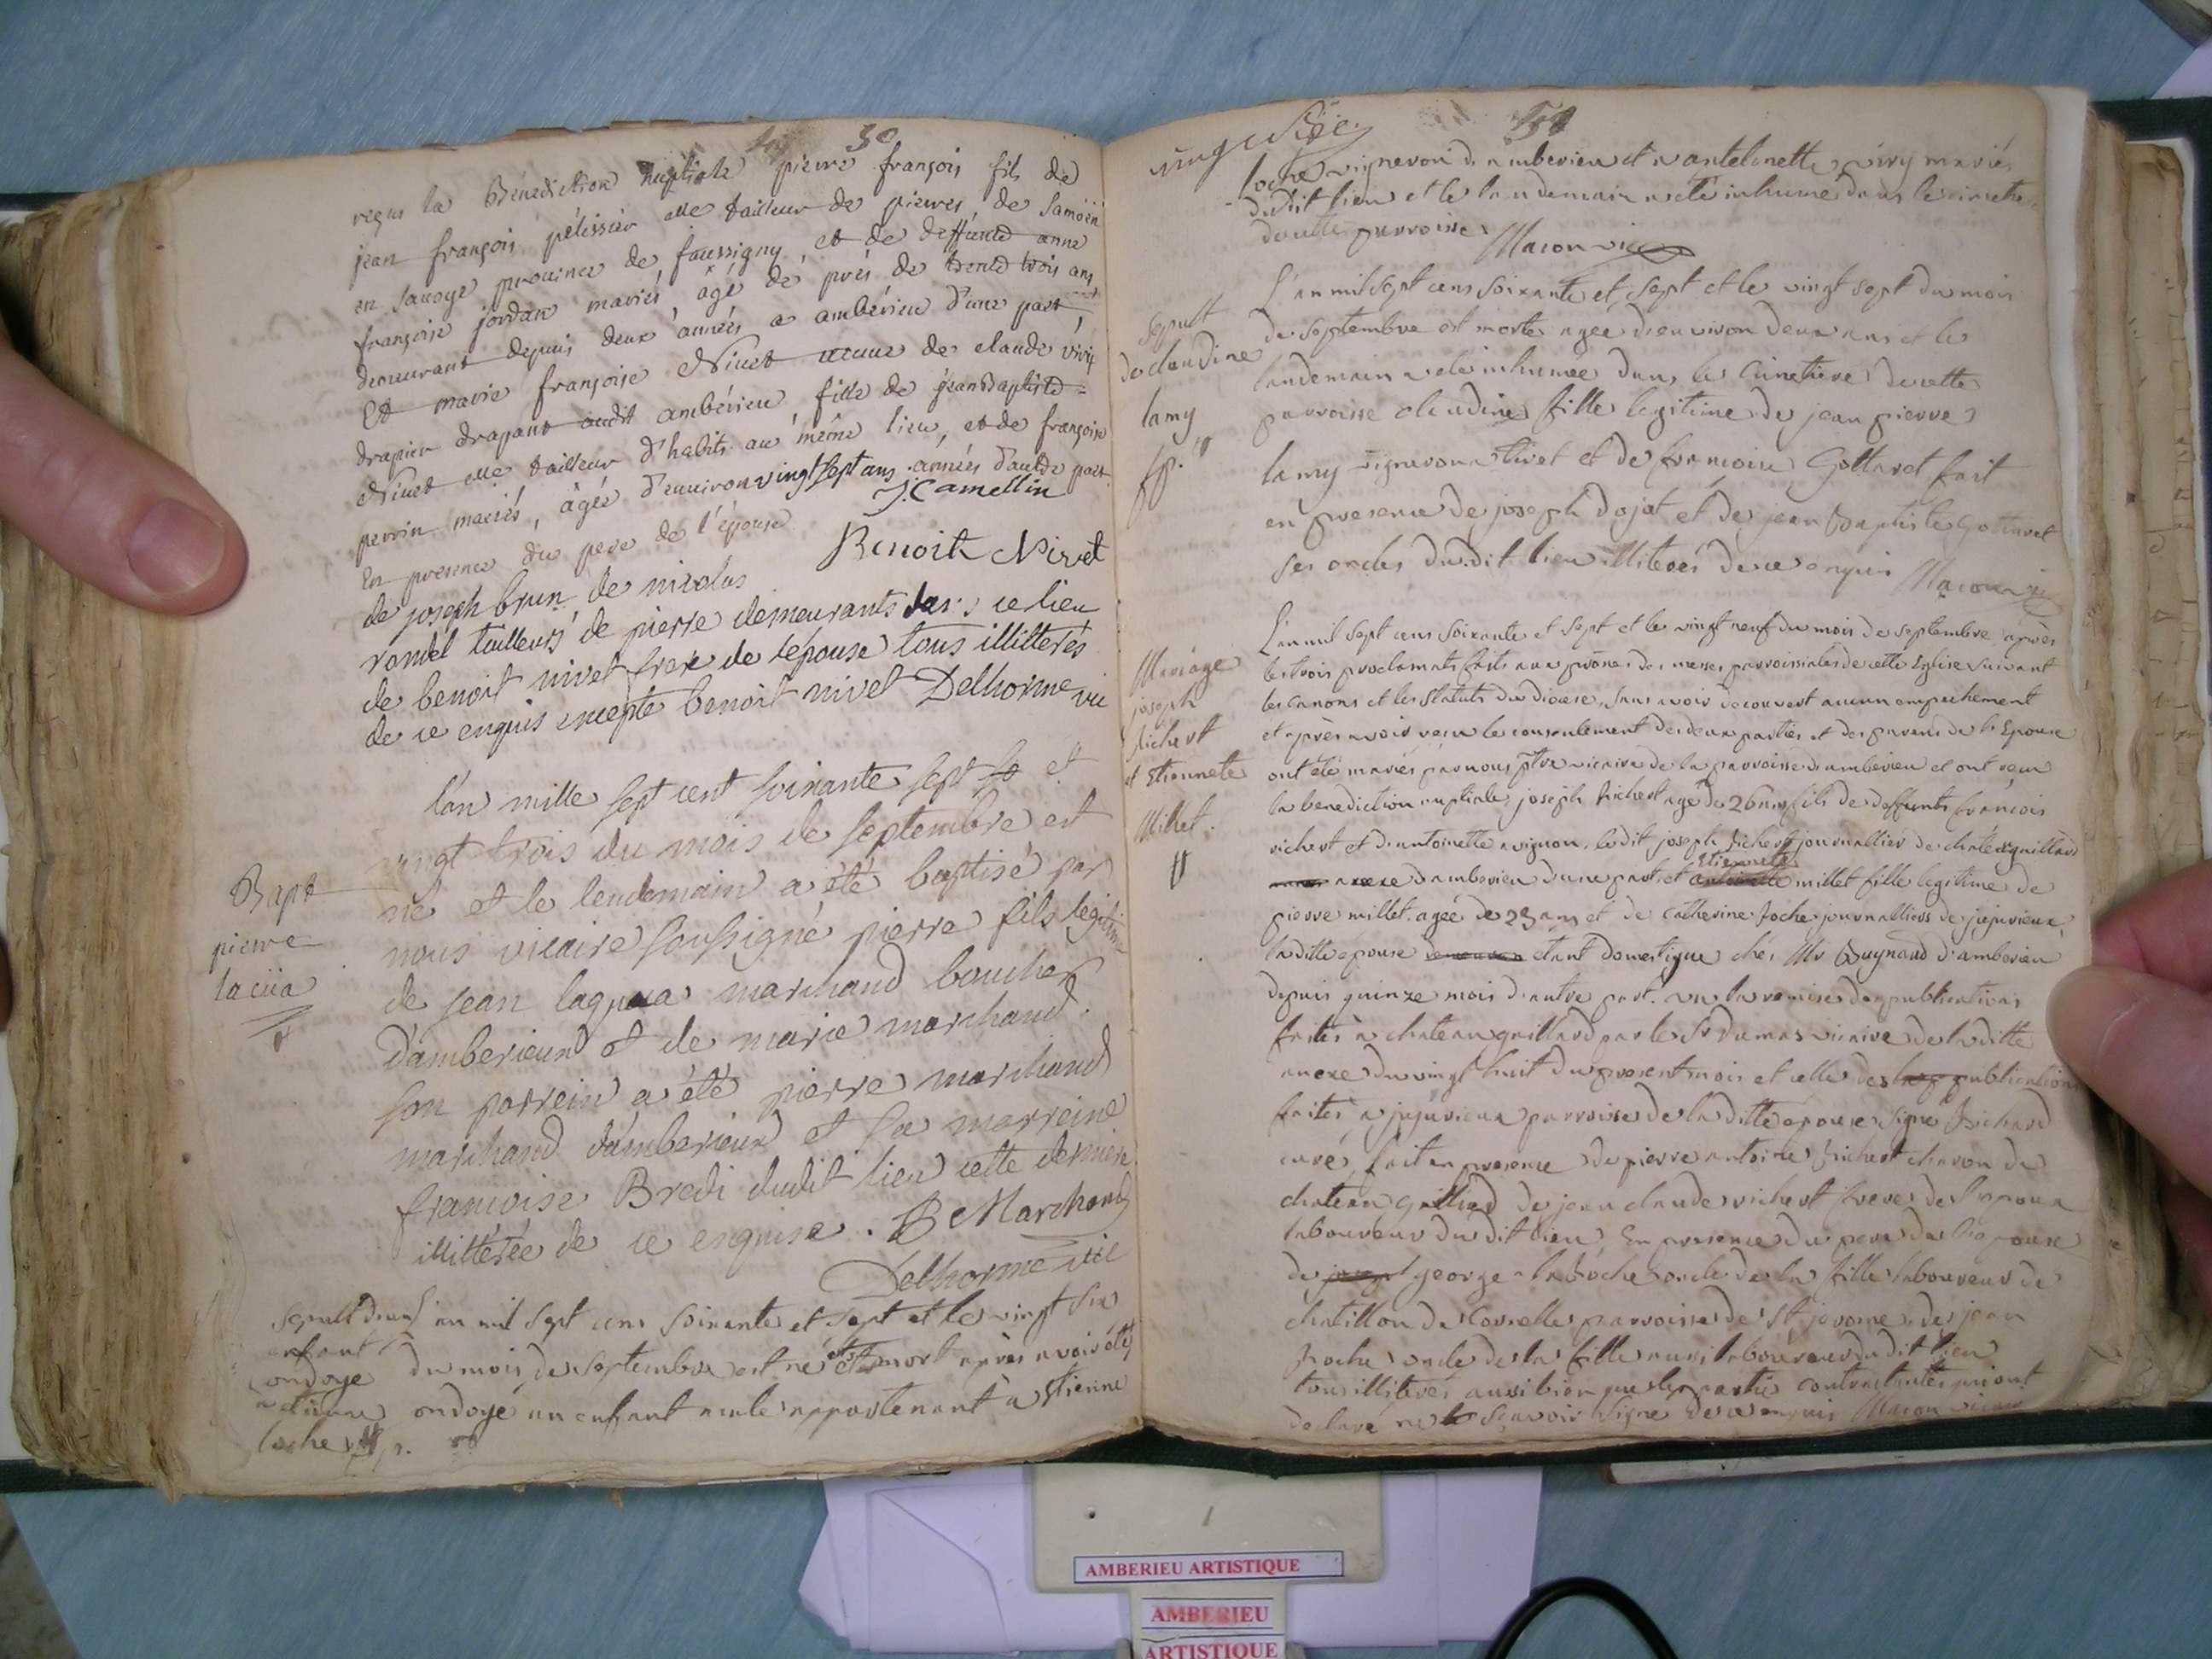 30
reçus la Bénédiction nuptiale pierre françois fils de
jean françois pélissier me tailleur de pierres, de Samoën
en Savoye province de faussigny, et de deffunte anne
françoise jordan mariés, âgé de près de trente trois ans
demeurant depuis deux années a ambérieu d'une part
Et marie françoise Nivet veuve de claude
drapier drapant audit ambérieu, fille de jean baptiste
Nivet me tailleur d'habits au même lieu, et de françoise
perrin mariés, âgée d'environ vingt sept ans années d'autre part.
En presence du pere de l'épouse J. Camellin
Benoit Nivet
de joseph brun de nicolas
tailleurs de pierre demeurants dans ce lieu
de benoit nivet frere de l'épouse tous illitterés
de ce enquis excepté benoit nivet Delhorme vic
l'an mille sept cent soixante sept et
vingt trois du mois de septembre est
né et le lendemain a été baptisé par
nous vicaire soussigné pierre fils legitime
de jean marchand boucher
d'amberieux et de marie marchand.
son parrein a été pierre marchand
marchand d'amberieux et sa marreine
francoise Bredi dudit lieu cette derniere
illitterée de ce enquise. B Marchand
Delhorme vic
Bapt
pierre
lacua
Sepult d'un
enfant
ondoyé
a etienne
loche
l'an mil sept cens soixante et sept et le vingt six
du mois de septembre est né et mort après avoir été
ondoyé un enfant male appartenant à etienne
loche vigneron d'amberieu et a antelinette mariés
dudit lieu et le landemain a été inhumé dans le cimetiere
de cette parroisse Macon vic
Sepult
de claudine
lamy
L'an mil sept cens soixante et sept et le vingt sept du mois
de septembre est morte agée d'environ deux ans et le
landemain a été inhumée dans le cimetiere de cette
parroisse claudine fille legitime de jean pierre
lamy vigneron a tiret et de françoise Gottaret fait
en presence de joseph dojat et de jean baptiste Gottaret
ses oncles dudit lieu illiterés de ce enquis Macon vic
Mariage
joseph
richert
et Etiennete
Millet.
L'an mil sept cens soixante et sept et le vingt neuf du mois de septembre après
les trois proclamats faits aux prônes des messes parroissiales de cette Eglise suivant
les canons et les statuts du diocese, sans avoir decouvert aucun empechement
et après avoir reçu le consentement des deux parties et des parens de l'Epouse
ont été mariés par nous ptre vicaire de la parroisse d'amberieu et ont reçu
la benediction nuptiale joseph richert agé de 26 ans fils de deffunts françois
richert et d'antoinette avignon, ledit joseph richert journallier de château gaillard
anexe d'amberieu d'une part, et Etiennette millet fille legitime de
pierre millet agée de 23 ans et de Catherine joche journalliers de jujurieux,
laditte épouse etant domestique chés Mr Buynand d'amberieu
depuis quinze mois d'autre part. vu la remise des publications
faites à chateau gaillard par le Sr Dumas vicaire de laditte
anexe du vingt huit du present mois et celle des publications
faites a jujurieux parroisse de la ditte epouse signé Richard
curé, fait en presence de pierre antoine richert charon de
chateau gaillard de jean claude richert frere de l'epoux
laboureur dudit lieu En presence du pere de l'épouse
de george oncle de la fille laboureur de
chatillon de Cornelle parroisse de St jerome, de jean
joche oncle de la fille aussi laboureur dudit lieu
tous illiterés aussi bien que les parties contractantes qui ont
declaré ne sçavoir signer de ce enquis Macon vicaire
AMBERIEU ARTISTIQUE
AMBERIEU
ARTISTIQUE